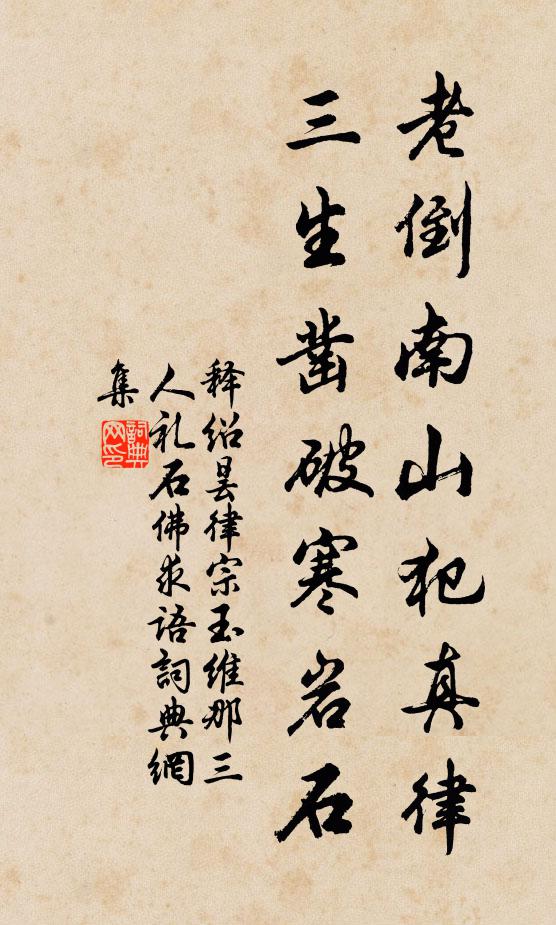 老倒南山犯真律
三生凿破寒岩石
释绍昙律宗玉维那三
人礼石佛求语詞典網
集
詞典网印